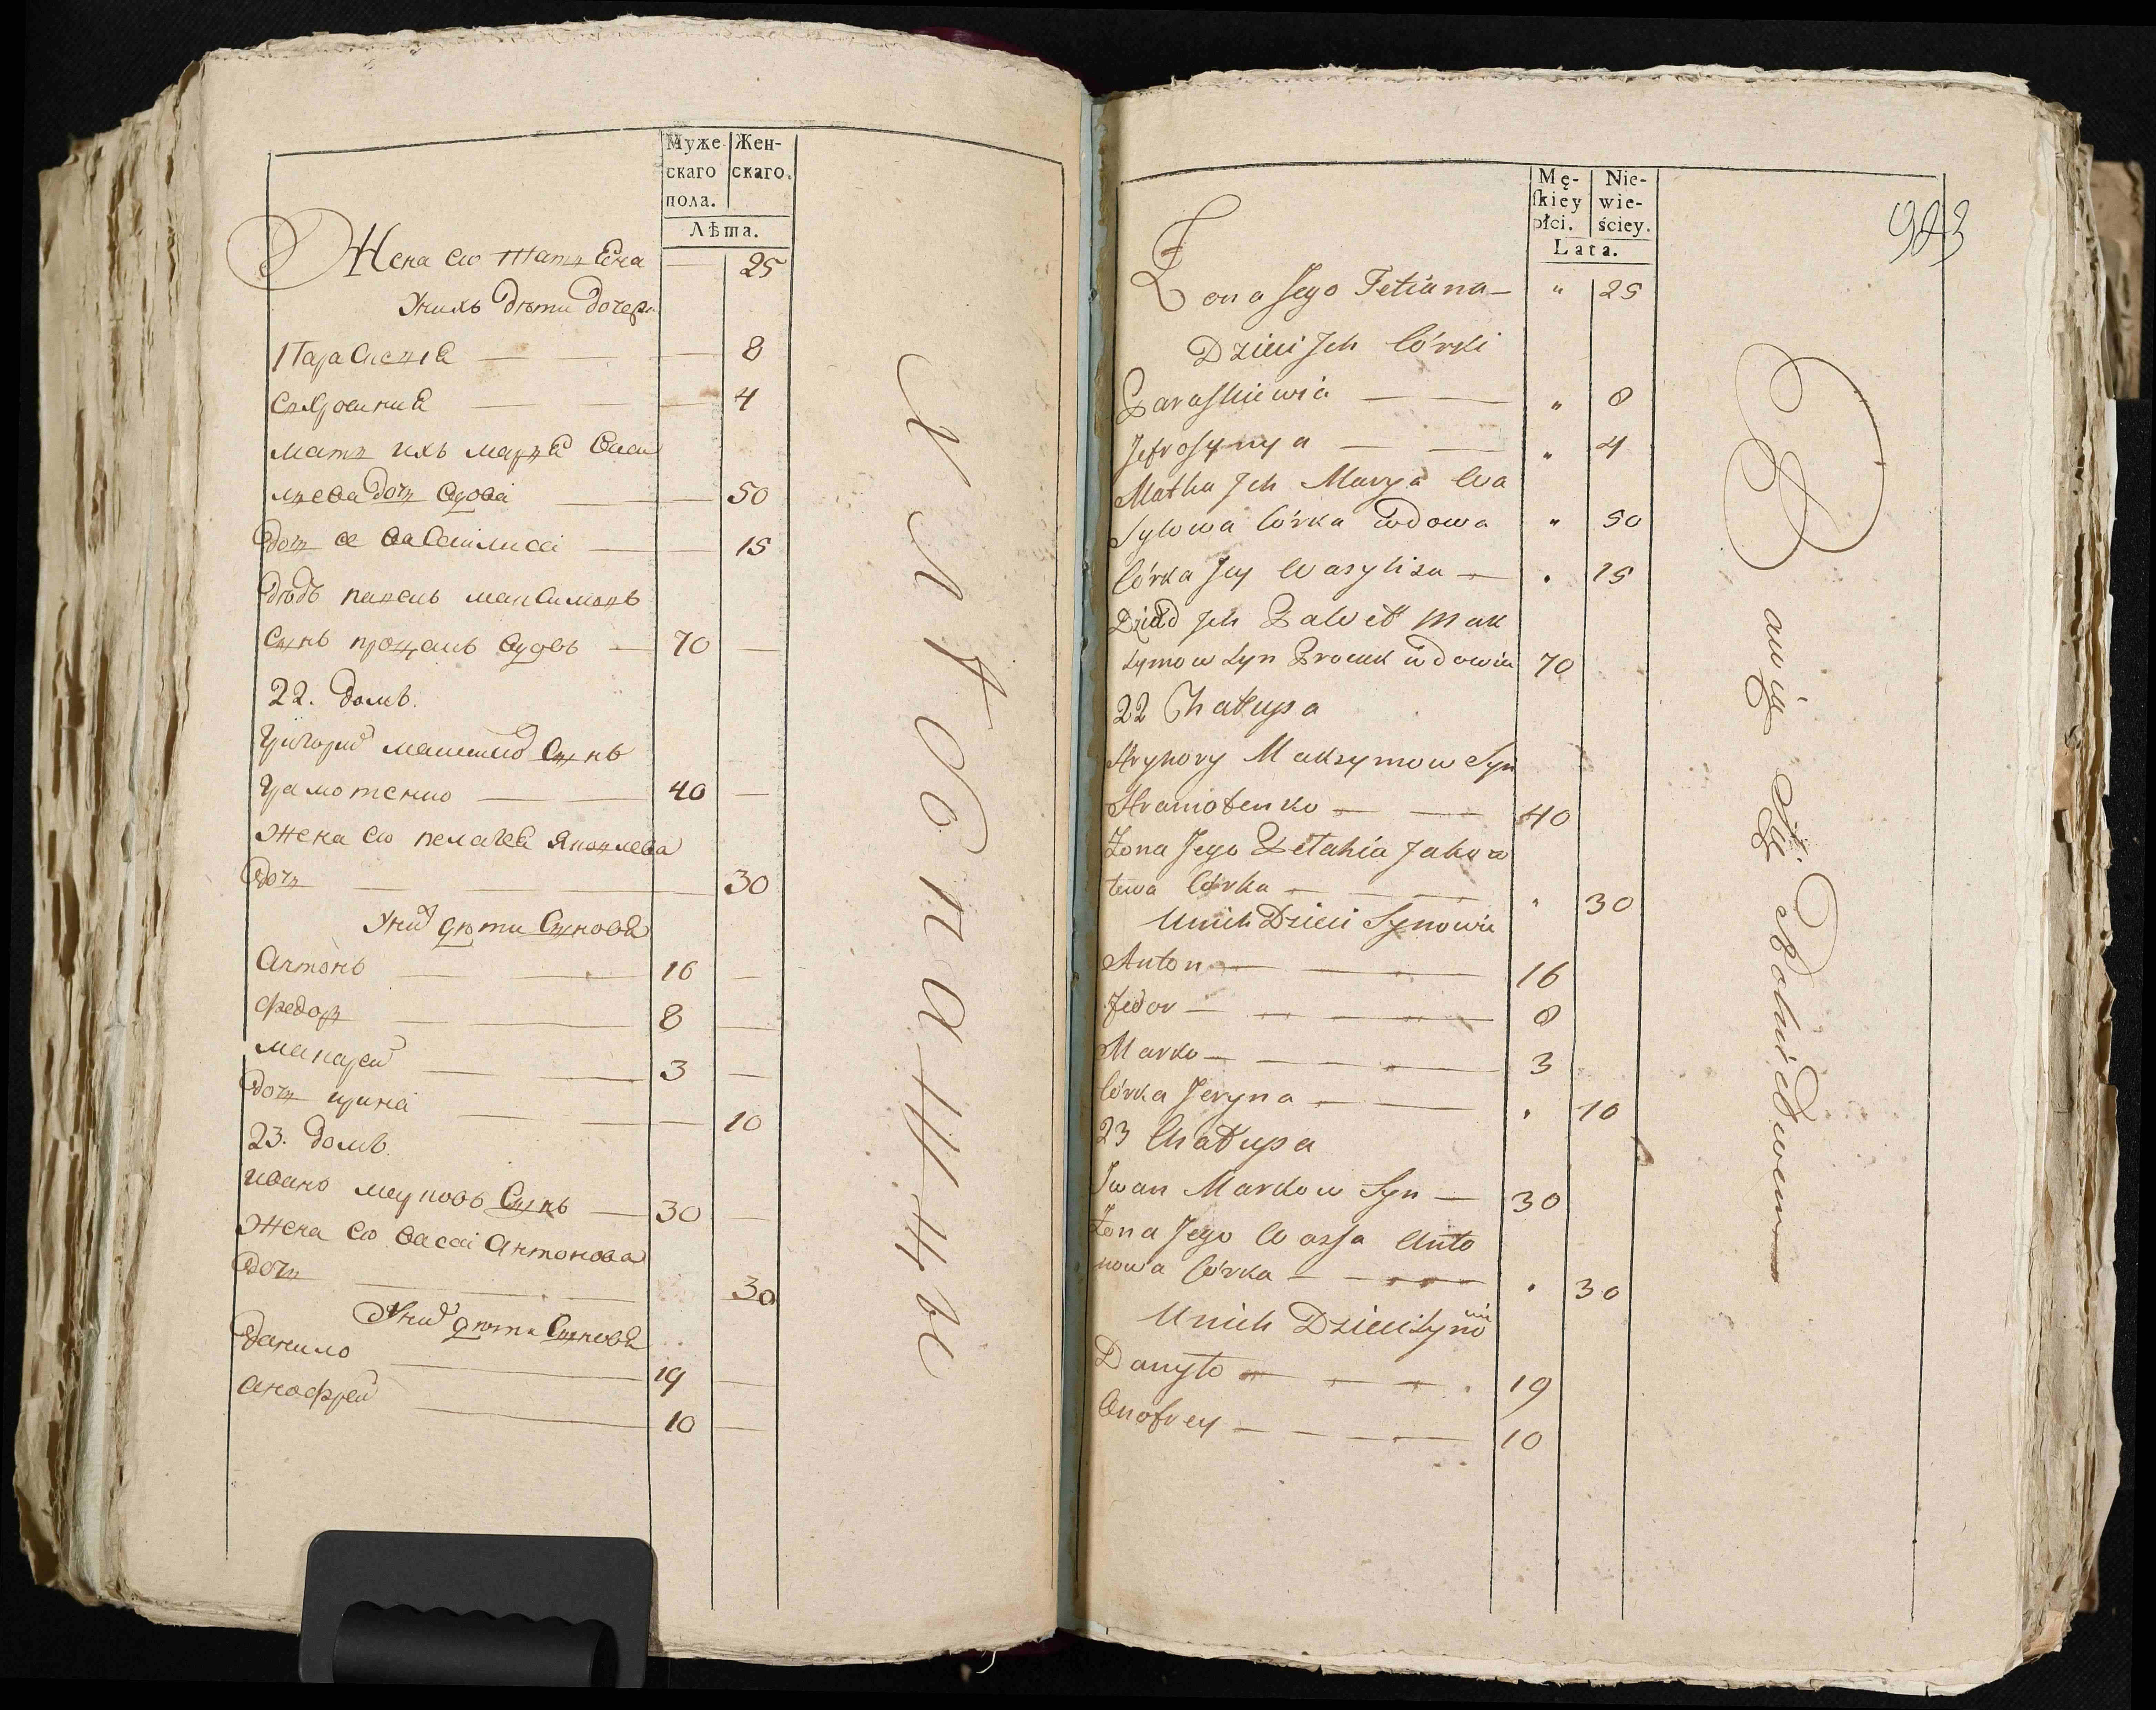 Муже- Жен-
скаго скаго.
пола.
Лѣта.
Жена ево татиѣна — 25
Унихъ дѣти дочери
Параскевиѣ — — — 8
Ефросиниѣ — — — 4
мать ихъ мариѣ васи
льева дочь вдова — — 50
дочь ее василиса — — 15
дѣдъ
сынъ вдовъ — 70 —
22. домъ.
Григорий сынъ
грамотенко — — 40 —
Жена ево пелагеѣ Яковлева
дочь — — — 30
Уних дѣти Сыновѣ
Антонъ — — 16 —
Федоръ — — 8 —
— — 3 —
дочь ирина — — — 10
23. домъ.
ивано марковъ Сынъ — 30 —
Жена ево васса Антонова
дочь — — 30
Уних дѣти Сыновѣ
Данило — 19 —
Анофрей — 10 —
Mę- Nie-
ſkiey wie-
płci. ściey.
Lata.
983
Zona Jego Tetiana — " 25
Dzieci Jch Córki
Paraskiewia — — " 8
Jefrosynya — — " 4
Matka Jch Marya Wa
sylowa Córka wdowa " 50
Córka Jey Wasylisa — " 15
Dziad Jch Paweł Mak
symow Syn wdowiec 70
22 Chałupa
Hryhory Maksymow Syn
Hramotenko — — 40
Zona Jego Pelahia Jakow
lewa Córka — — " 30
Unich Dzieci Synowie
Anton — — 16
Fedor — — 8
Marko — — 3
Córka Jeryna — — " 10
23 Chałupa
Jwan Markow Syn — 30
Zona Jego Wassa Anto
nowa Córka — — " 30
Unich Dzieci Synowie
Danyło — — 19
Onofrey — — 10